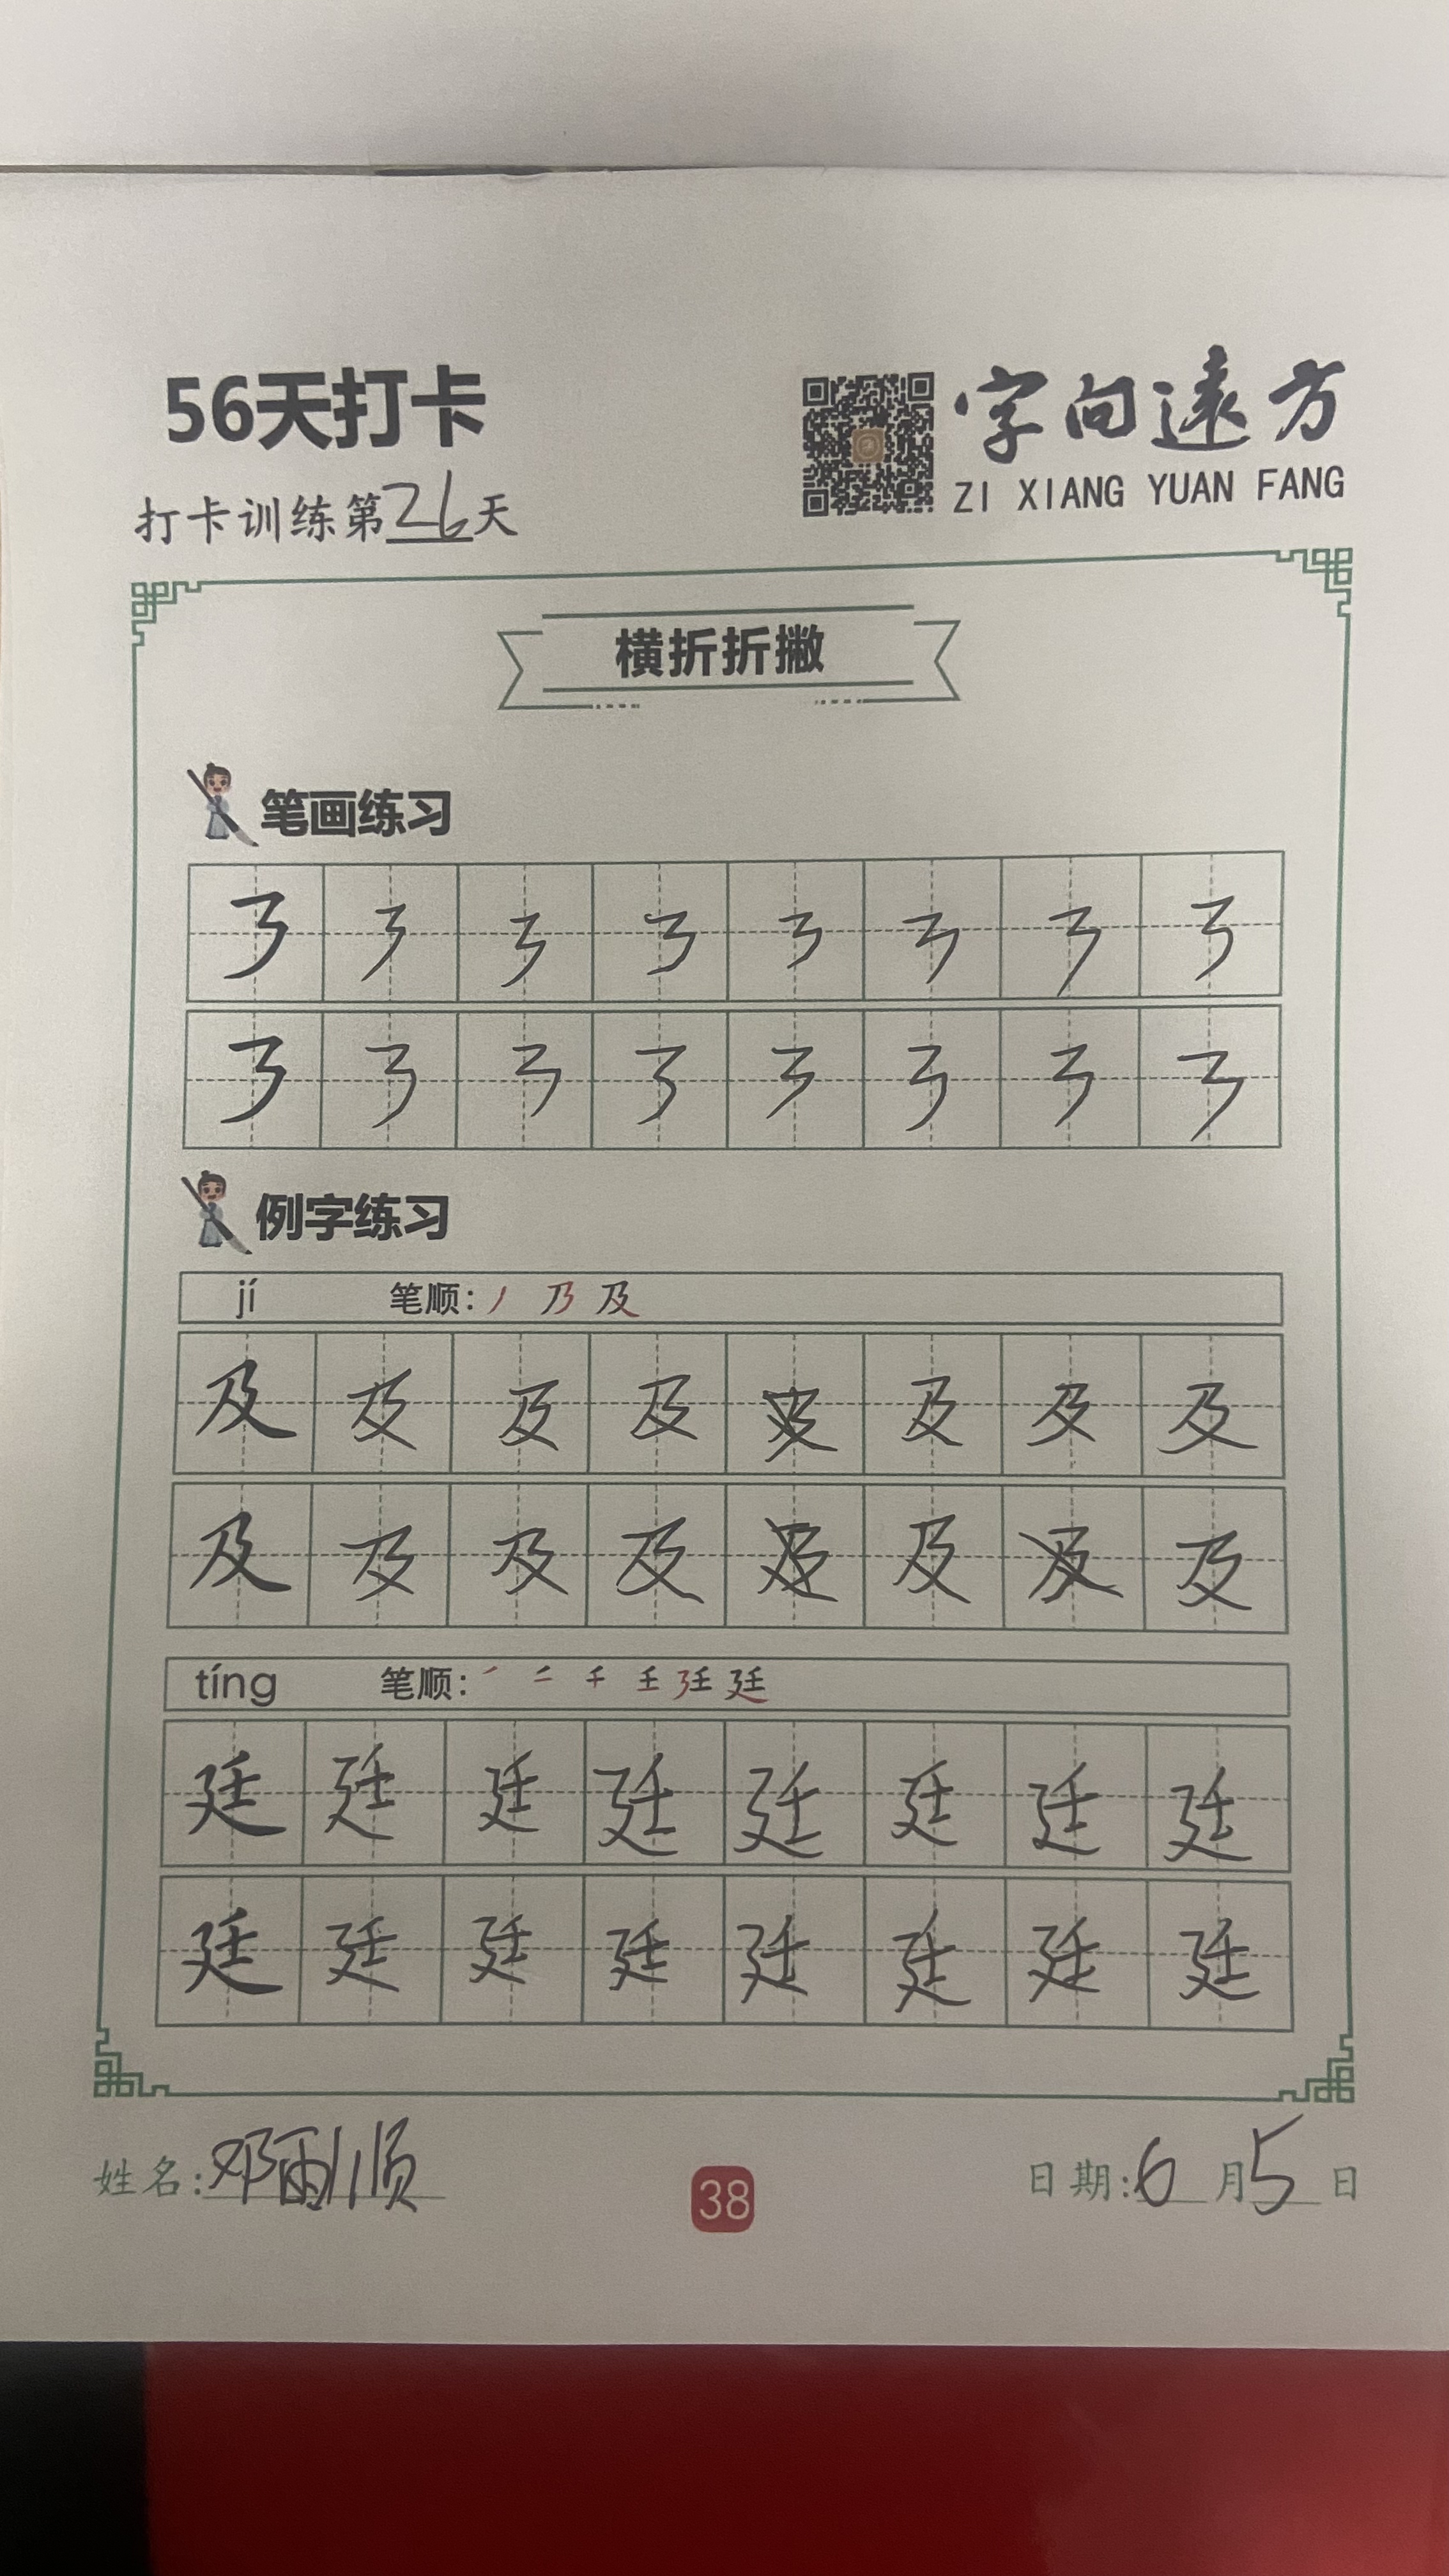 56天打卡
字向遠方
ZI XIANG YUAN FANG
打卡训练第26天
横折折撇
笔画练习
㇋ ㇋ ㇋ ㇋ ㇋ ㇋ ㇋ ㇋
㇋ ㇋ ㇋ ㇋ ㇋ ㇋ ㇋ ㇋
例字练习
jí 笔顺: 丿 乃 及
及 及 及 及 及 及 及
及 及 及 及 及 及
tíng 笔顺: ㇒ 二 千 壬 廷
廷 廷 廷 廷 廷 廷 廷 廷
廷 廷 廷 廷 廷 廷 廷 廷
姓名: 邓 顺
38
日期: 6月5日